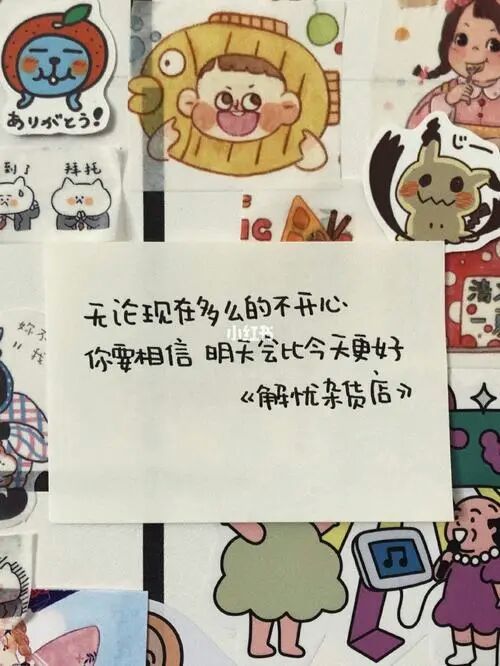 ありがとう!
到♪
拜托
じー
无论现在多么的不开心
小红书
你要相信 明天会比今天更好
《解忧杂货店》